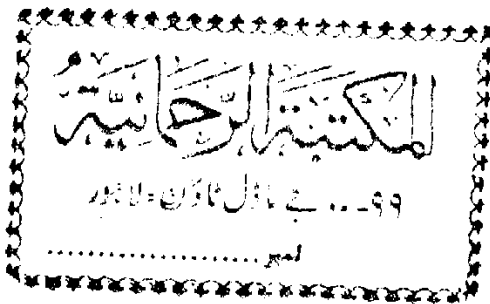 المكتبة الرحمانية
۹۹۔۔۔ جے ماڈل ٹاؤن۔ لاہور
نمبر....................